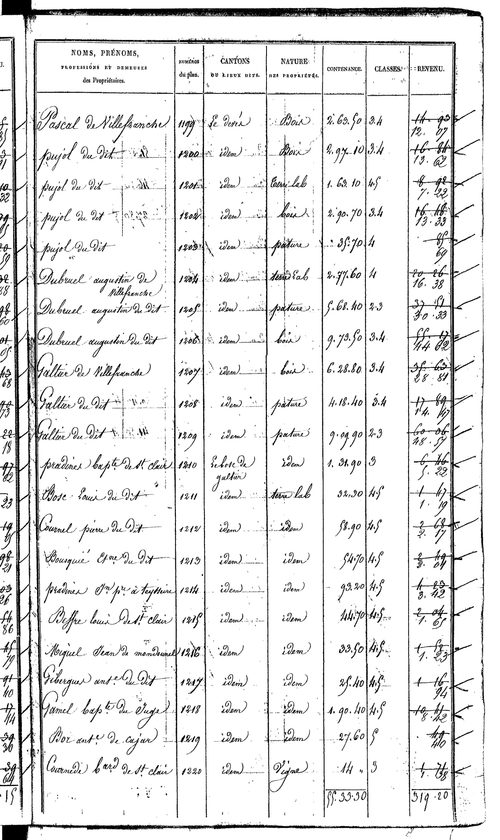 NOMS, PRÉNOMS, PROFESSIONS ET DEMEURES des Propriétaires. | NUMÉROS du plan. | CANTONS OU LIEUX DITS. | NATURE DES PROPRIÉTÉS. | CONTENANCE. | CLASSES. | REVENU.
Pascal de Villefranche 1199 Bois 2.63.50 3.4 14.93
12.07
pujol du dit 1200 idem Bois 2.97.10 3.4 16.84
13.62
pujol du dit 1201 idem terre lab 1.63.10 4.5
7.22
pujol du dit 1202 idem bois 2.90.70 3.4
13.33
pujol du dit 1203 idem pature 35.70 4 85
69
Dubruel augustin de 1204 idem terre lab 2.77.60 4 20.26
Villefranche 16.38
Dubruel augustin du dit 1205 idem pature 5.68.40 2.3 37.51
30.33
Dubruel augustin du dit 1206 idem bois 9.73.50 3.4
44.62
Galtier de Villefranche 1207 idem bois 6.28.80 3.4 35.63
28.81
Galtier du dit 1208 idem pature 4.18.40 3.4 17.89
14.47
Galtier du dit 1209 idem pature 9.09.90 2.3 60.06
48.57
pradines bapte de st clair 1210 Le bosc de idem 1.31.90 3
galtier 5.22
Bosc Louis du dit 1211 idem terre lab 32.30 4.5 1.47
1.19
Cournel pierre du dit 1212 idem idem 58.90 4.5 2.68
2.17
Bourguié Etne du dit 1213 idem idem 54.70 4.5
2.04
pradines 1214 idem idem 93.20 4.5 4.23
3.42
Beffre louis de st clair 1215 idem idem 44.70 4.5 2.04
1.65
Miquel Jean de 1216 idem idem 33.50 4.5
1.23
Gibergues ante du dit 1217 idem idem 25.40 4.5 1.16
94
Gamel bapte du Juge 1218 idem idem 1.90.40 4.5
8.42
Boi ante de cajar 1219 idem idem 27.60 5 49
40
Cournede bard de st clair 1220 idem Vigne 14 " 3 1.71
1.38
55.33.30 319.20